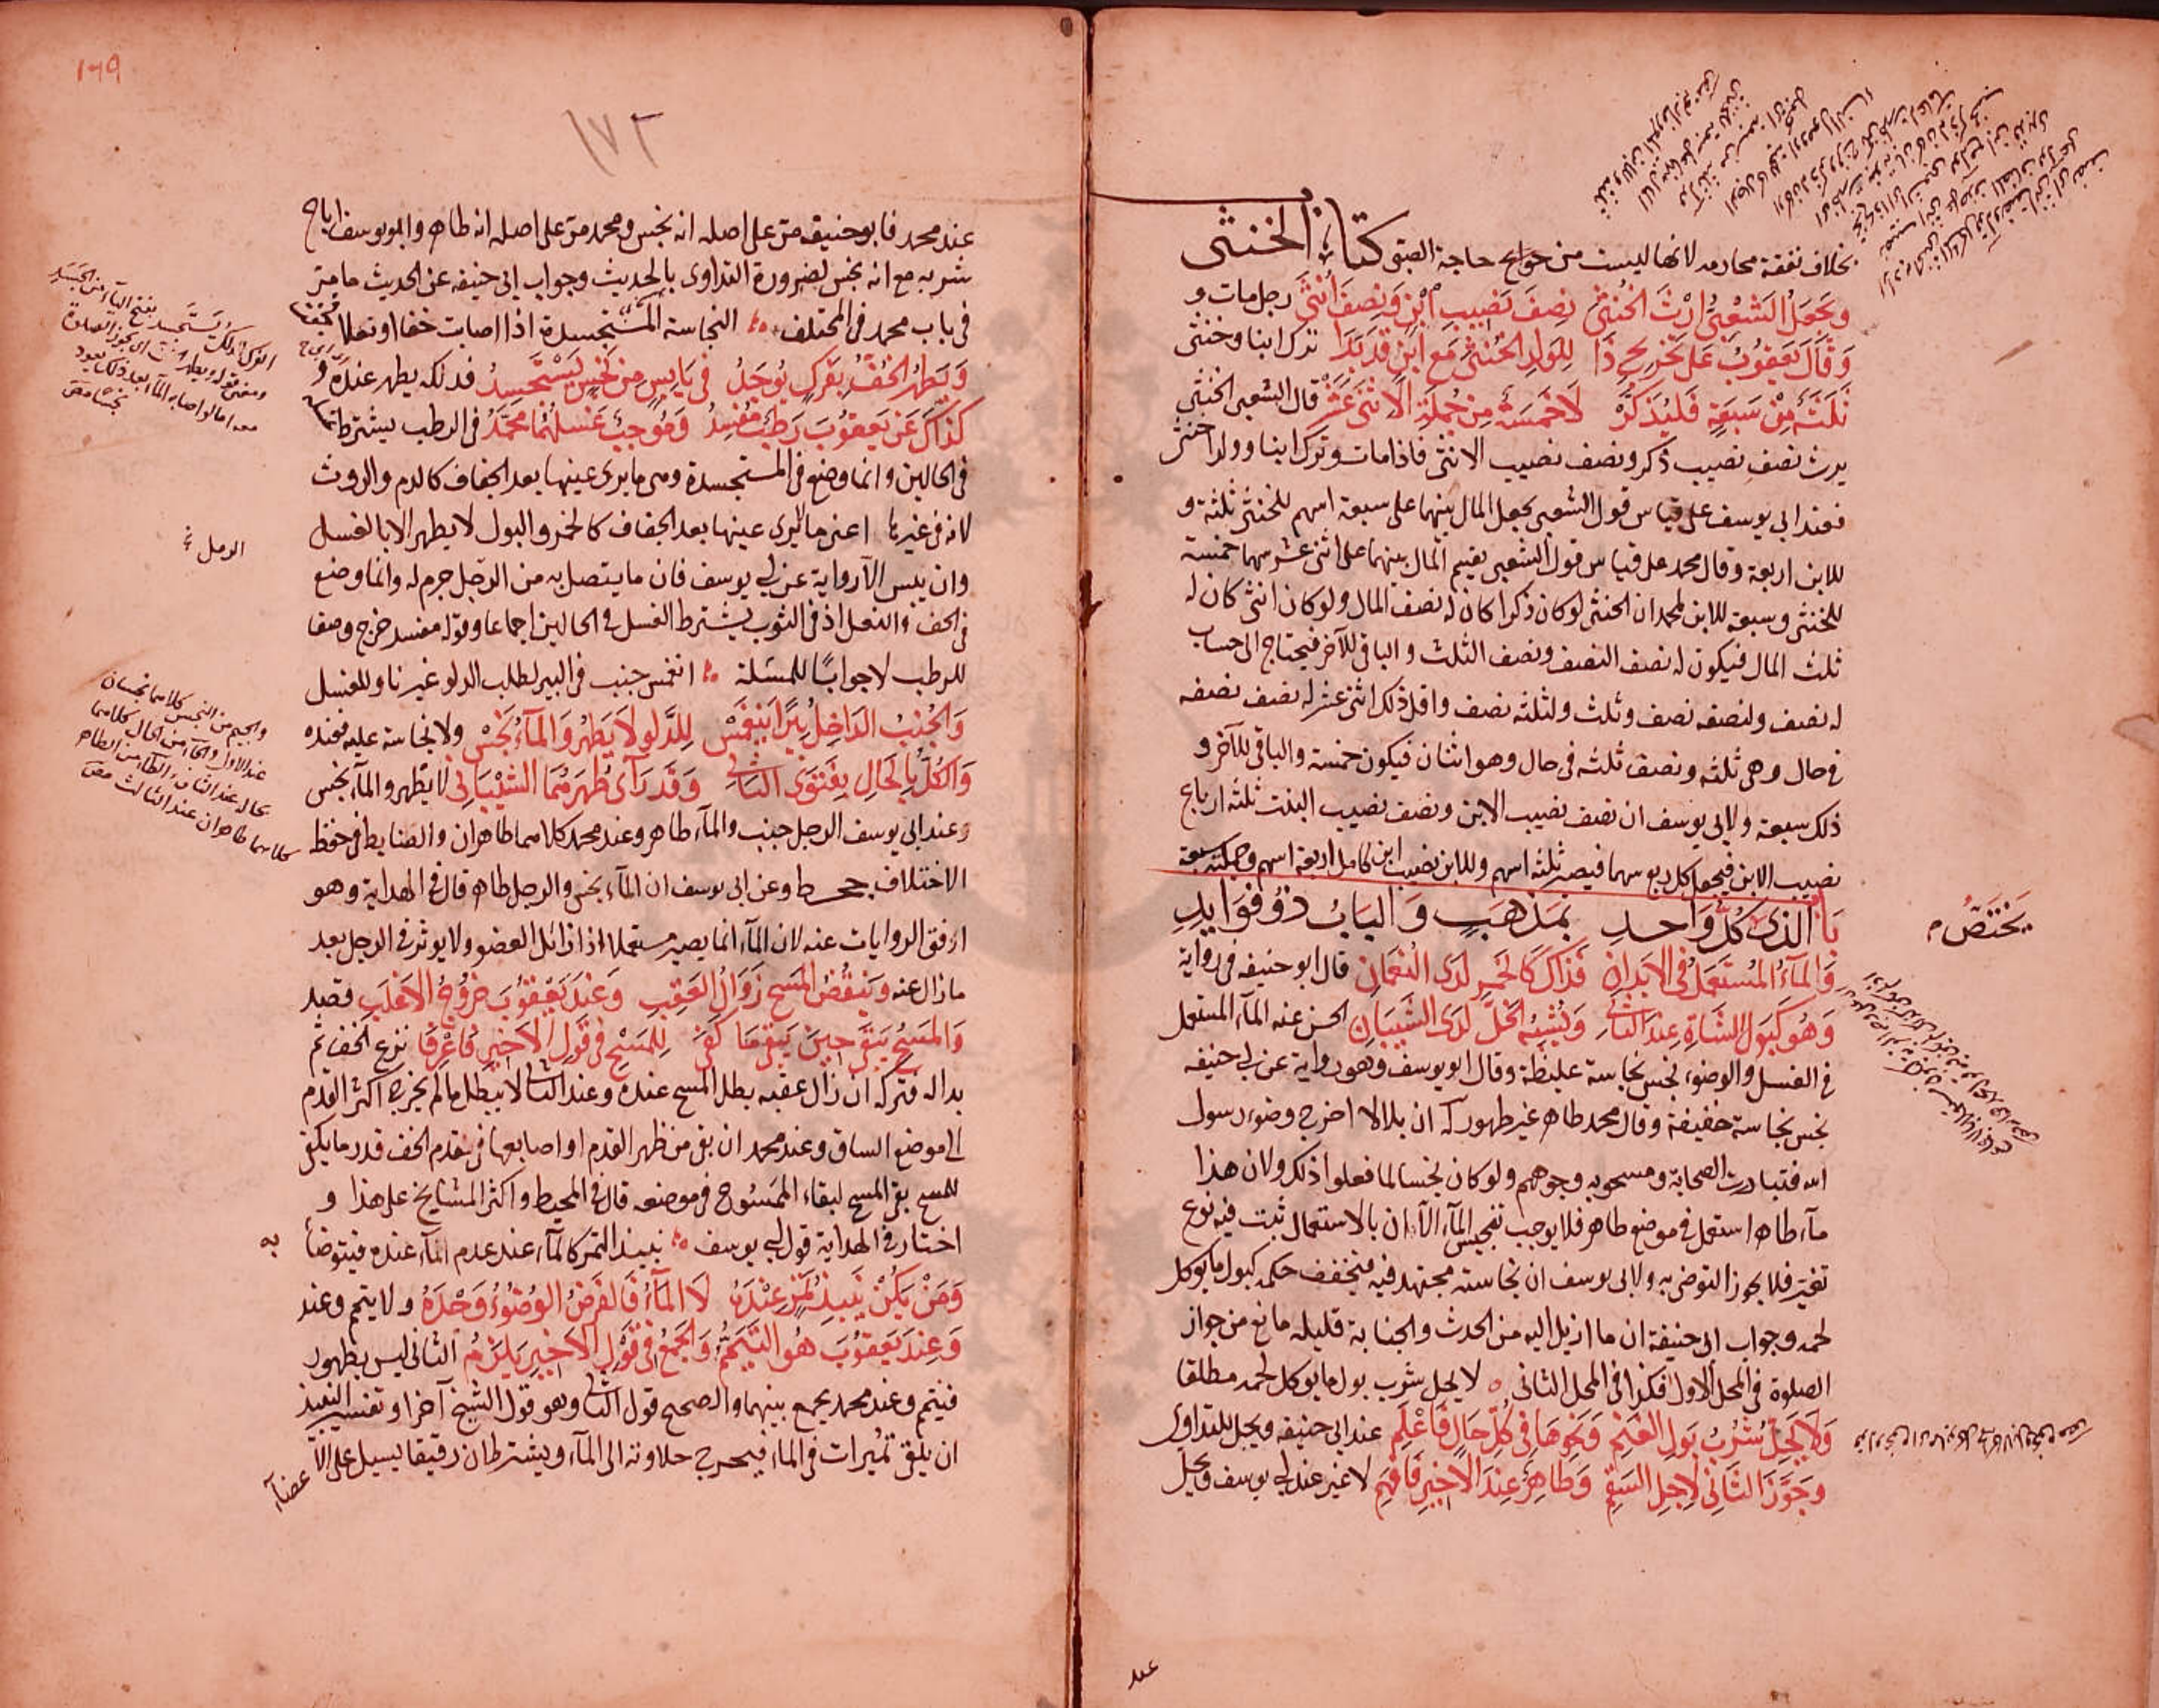 بخلاف نفقة محارمه لانها ليست من حوائج حاجة الصبى كتاب الخنثى
وَيَجعَلُ الشَعْبِىُّ اِرْثَ الخُنثىٰ نِصفَ نَصِيبِ ابْنٍ وَنِصفَ أُنثىٰ رجل مات و
وَقَالَ يَعقُوبُ عَلَى تَخْرِيجِ ذَا لِلوَلَدِ الخُنثىٰ مَعَ ابْنٍ قَد بَدَا ترك ابنا وخنثى
ثَلَثَةٌ مِنْ سَبعَةٍ فَليُذكَرُ لَا خَمسَةٌ مِن جُملَةِ الاِثنَى عَشَرْ قال الشعبى الخنثى
يرث نصف نصيب ذكر ونصف نصيب الانثى فاذا مات وترك ابنا وولدا خنثى
فعند ابى يوسف على قياس قول الشعبى يجعل المال بينهما على سبعة اسهم للخنثى ثلثة و
للابن اربعة وقال محمد على قياس قول الشعبى يقيم المال بينهما على اثنى عشر سهما خمسة
للخنثى وسبعة للابن لمحمد ان الخنثى لو كان ذكرا كان له نصف المال ولو كان انثى كان له
ثلث المال فيكون له نصف النصف ونصف الثلث والباقى للآخر فيحتاج الى حساب
له نصف ولنصفه نصف وثلث ولثلثه نصف واقل ذلك اثنى عشر له نصف نصفه
فى حال وهى ثلثه ونصف ثلثه فى حال وهو اثنان فيكون خمسة والباقى للآخر و
ذلك سبعة ولابى يوسف ان نصف نصيب الابن ونصف نصيب البنت ثلثة ارباع
نصيب الابن فيجعل كل ربع سهما فيصير ثلثة اسهم وللابن نصيب ابن كامل اربعة اسهم وجملته سبعة
بَابُ الَّذِى كُلُّ وَاحدٍ بمَذهَبٍ وَالبَابُ ذُو فَوَايِدِ
يَختَصُّ م
وَالمَآءُ المُستَعمَلُ فِى الاَبدَانِ فَذَاكَ كَالخَمرِ لَدَى النُعمَانِ قال ابو حنيفه فى رواية
وَهُوَ كَبَولِ الشَاةِ عِندَ الثَانِى وَيُشبِهُ الخَلَّ لَدَى الشَيبَانِى الحسن عنه المآء المستعمل
فى الغسل والوضوء نجس نجاسة غليظة وقال ابو يوسف وهو رواية عن ابى حنيفه
نجس نجاسة خفيفة وقال محمد طاهر غير طهور له ان بلالا اخرج وضوء رسول
الله فتبادرت الصحابة ومسحوا به وجوههم ولو كان نجسا لما فعلوا ذلك ولان هذا
مآء طاهر استعمل فى موضع طاهر فلا يوجب تنجيس المآء الا ان بالاستعمال ثبت فيه نوع
تغير فلا يجوز التوضى به ولابى يوسف ان نجاسته مجتهد فيه فيخفف حكمه كبول ما يوكل
لحمه وجواب ابى حنيفة ان ما ازيل اليه من الحدث والجنابة قليله مانع من جواز
الصلوة فى المحل الاول فكذا فى المحل الثانى ه لا يحل شرب بول ما يوكل لحمه مطلقا
وَلَا يَحِلُّ شُربُ بَولِ الغَنَمِ وَنَحوِهَا فِى كُلِّ حَالٍ فَاعْلَمِ عند ابى حنيفه ويحل للتداوى
وَجَوَّزَ الثَانِى لِاَجلِ السَقَمِ وَطَاهِرٌ عِندَ الاَخِيرِ فَافهَمِ لا غير عند ابى يوسف ويحل
عند
١٦٩
١٧٢
عند محمد فابو حنيفه مر على اصله انه نجس ومحمد مر على اصله انه طاهر وابو يوسف اباح
شربه مع انه نجس لضرورة التداوى بالحديث وجواب ابى حنيفه عن الحديث ما مر
فى باب محمد فى المختلف ه النجاسة المستجسدة اذا اصابت خفا او نعلا فجفت
وَيَطهُرُ الخُفُّ بِفَركٍ يُوجَدُ فِى يَابِسٍ مِن نَجَسٍ يَستَجسِدُ فدلكه يطهر عنده و
كَذَاكَ عَن يَعقُوبَ رَطبٌ مُفسِدُ وَمُوجِبٌ غَسلَهُمَا مُحَمَّدُ فى الرطب يشترط
فى الحالين وانما وضع فى المستجسدة وهى ما يرى عينها بعد الجفاف كالدم والروث
لانه فى غيرها اعنى ما لا يرى عينها بعد الجفاف كالخمر والبول لا يطهر الا بالغسل
الرمل
وان يبس الا رواية عن ابى يوسف فان ما يتصل به من الرمل جرم له وانما وضع
فى الخف والنعل اذ فى الثوب يشترط الغسل فى الحالين اجماعا وقوله مفسد خرج وصفا
للرطب لا جوابًا للمسئلة ه انغمس جنب فى البير لطلب الدلو غير ناو للغسل
وَالجُنبُ الدَاخِلُ بِيرًا يَنغَمِسْ لِلدَّلوِ لَا يَطهُرُ وَالمَآءُ نَجِسْ ولا نجاسة عليه فعنده
وَالكُلُّ بِالحَالِ بِفَتوَى الثَانِى وَقَد رَآى طُهرَهُمَا الشَيبَانِى لا يطهر والمآء نجس
وعند ابى يوسف الرجل جنب والمآء طاهر وعند محمد كلاهما طاهران والضابط فى حفظ
الاختلاف جحط وعن ابى يوسف ان المآء نجس والرجل طاهر قال فى الهداية وهو
ارفق الروايات عنه لان المآء انما يصير مستعملا اذا زائل العضو ولا يوثر فى الرجل بعد
ما زال عنه وَيَنقُضُ المَسحَ زَوَالُ العَقِبِ وَعِندَ يَعقُوبَ خُرُوجُ الاَغلَبِ قصد
وَالمَسحُ يَبقَى حِينَ يَبقَى مَا كَفَى لِلمَسحِ فِى قَولِ الاَخِيرِ فَاعْرِفَا نزع الخف ثم
بدا له فتركه ان زال عقبه بطل المسح عنده وعند الثانى لا يبطل ما لم يخرج اكثر القدم
الى موضع الساق وعند محمد ان بقى من ظهر القدم او اصابعها فى مقدم الخف قدر ما يكفى
للمسح بقى المسح لبقاء الممسوح فى موضعه قال فى المحيط واكثر المشايخ على هذا و
اختار فى الهداية قول ابى يوسف ه نبيذ التمر كالمآء عند عدم المآء عنده فيتوضأ به
وَمَنْ يَكُنْ نَبِيذُ تَمرٍ عِندَهُ لَا المَآءُ فَالفَرضُ الوُضُوءُ وَحدَهُ ولا يتيمم وعند
وَعِندَ يَعقُوبَ هُوَ التَيَمُّمُ وَالجَمعُ فِى قَولِ الاَخِيرِ يَلزَمُ الثانى ليس بطهور
فيتيمم وعند محمد يجمع بينهما والصحيح قول الثانى وهو قول الشيخ آخرا وتفسير النبيذ
ان يلقى تميرات فى الماء فيخرج حلاوته الى المآء ويشترط ان رقيقا يسيل على الاعضآء
والجيم من النجس كلاهما نجسان
عند الاول والحآء من الحال كلاهما
بحاله عند الثانى والطآء من الطاهر
كلاهما طاهران عند الثالث